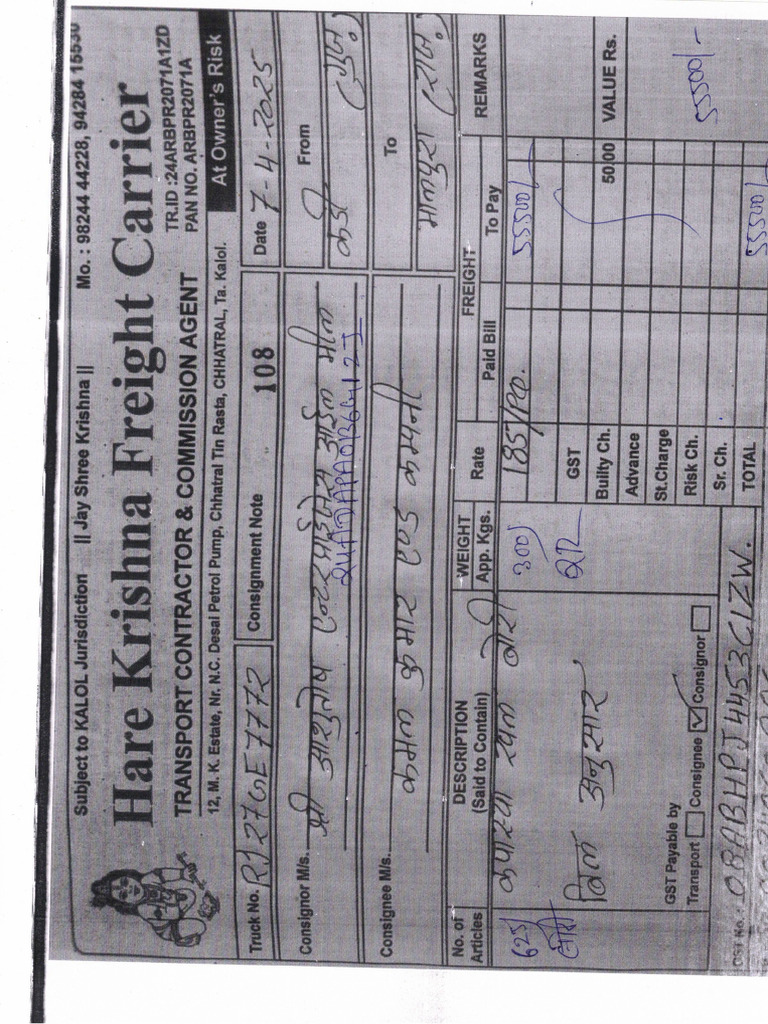 Subject to KALOL Jurisdiction || Jay Shree Krishna || Mo. : 98244 44228, 94284 15530
Hare Krishna Freight Carrier
TRANSPORT CONTRACTOR & COMMISSION AGENT
TR.ID :24ARBPR2071A1ZD
PAN NO. ARBPR2071A
12, M. K. Estate, Nr. N.C. Desai Petrol Pump, Chhatral Tin Rasta, CHHATRAL, Ta. Kalol.
At Owner's Risk
Truck No. RJ27GE7772 Consignment Note 108 Date 7-4-2025
Consignor M/s. श्री आशुतोष एन्टरप्राईजेस आईल मील
From
कडी
Consignee M/s. कमल कुमार एण्ड कम्पनी
To
मालपुरा
No. of Articles DESCRIPTION (Said to Contain) WEIGHT App. Kgs. Rate FREIGHT REMARKS
Paid Bill To Pay
625 कपास्या खल बोरी 300 185/PQ. 55500/-
बिल अनुसार
GST
Builty Ch. 50.00 VALUE Rs.
Advance
St.Charge
Risk Ch.
Sr. Ch.
55500/-
GST Payable by
Transport Consignee Consignor
TOTAL 55500/-
GST No. : 08ABHPJ4453C1ZW.